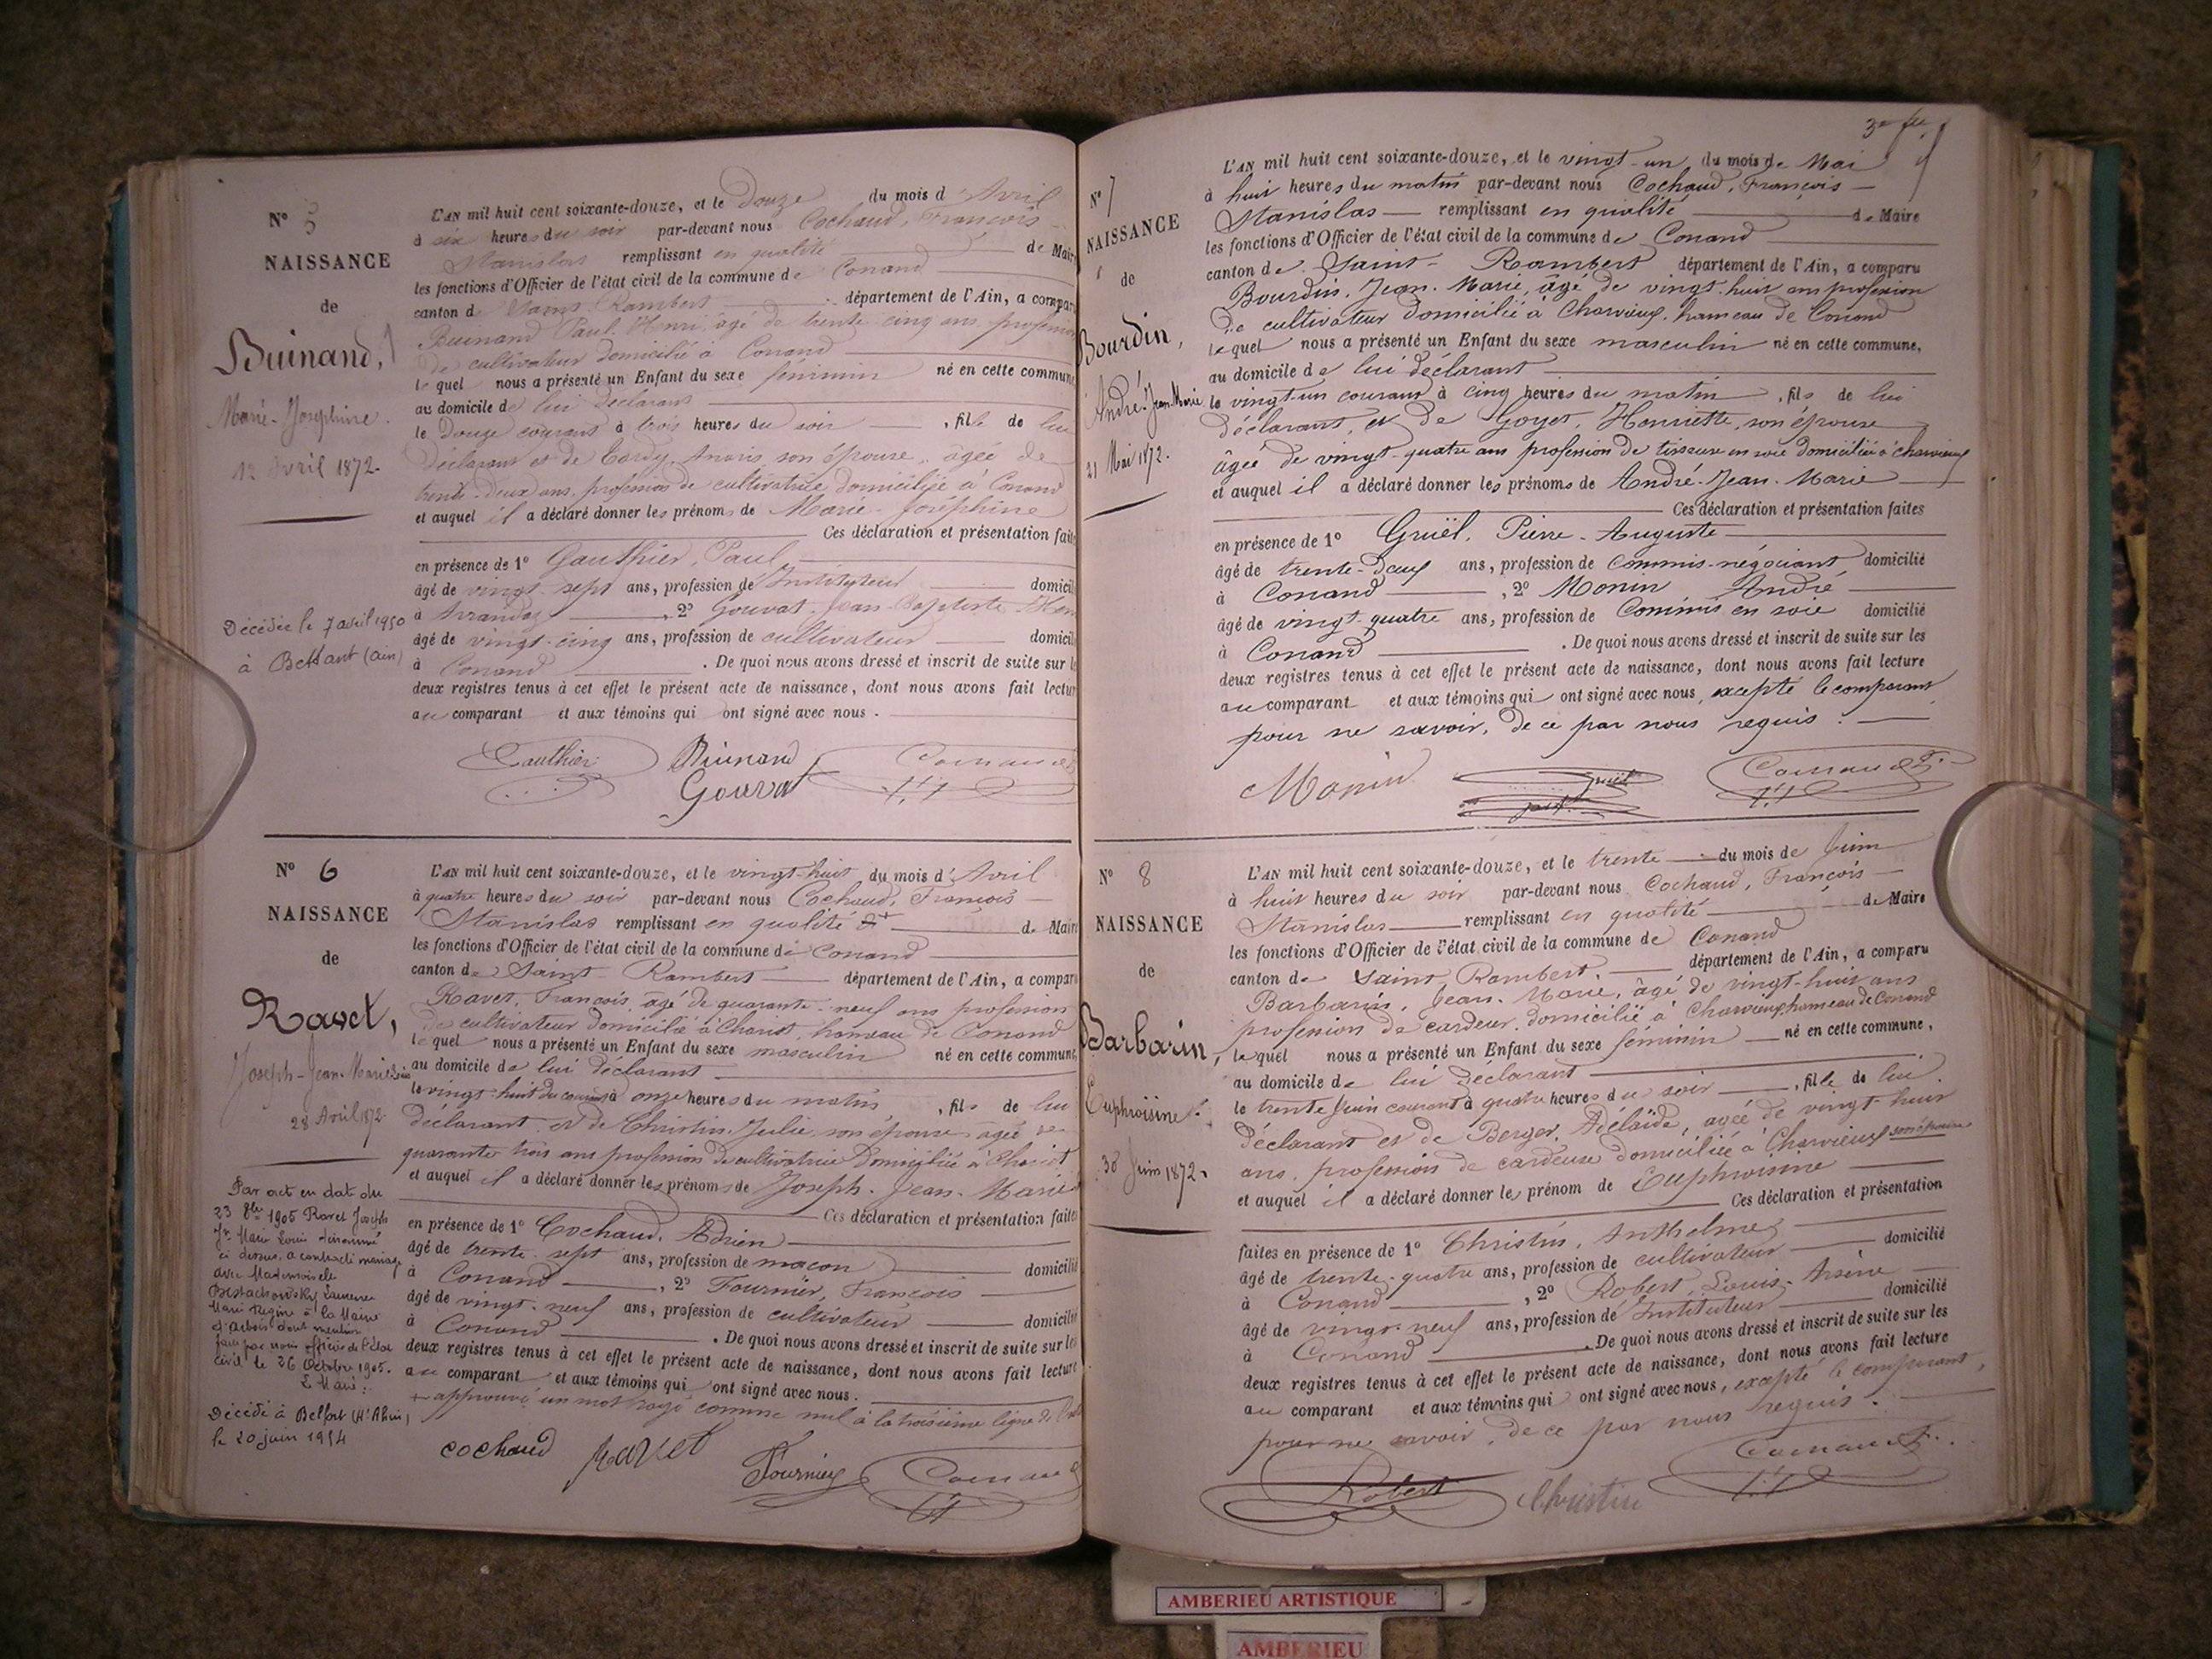 Nº 5
NAISSANCE
de
Buinand,
Marie-Joséphine.
12 Avril 1872.
Décédée le 7 avril 1950
à Bettant (Ain)
L'AN mil huit cent soixante-douze, et le Douze du mois d'Avril
à six heures du soir par-devant nous Cochaud, François
Stanislas remplissant en qualité de Maire
les fonctions d'Officier de l'état civil de la commune de Conand
canton de Saint Rambert département de l'Ain, a comparu
Buinand Paul-Henri, âgé de trente-cinq ans, profession
de cultivateur domicilié à Conand
lequel nous a présenté un Enfant du sexe féminin né en cette commune
au domicile de lui déclarant
le Douze courant à trois heures du soir, fille de lui
déclarant et de Tardy, Anaïs son épouse, âgée de
trente-deux ans, profession de cultivatrice domiciliée à Conand
et auquel il a déclaré donner les prénoms de Marie-Joséphine
Ces déclaration et présentation faites
en présence de 1º Gauthier, Paul
âgé de vingt-sept ans, profession de Instituteur domicilié
à Arrandas, 2º Gouvat Jean-Baptiste
âgé de vingt-cinq ans, profession de cultivateur domicilié
à Conand. De quoi nous avons dressé et inscrit de suite sur les
deux registres tenus à cet effet le présent acte de naissance, dont nous avons fait lecture
au comparant et aux témoins qui ont signé avec nous.
Gauthier Buinand
Gouvat
Nº 6
NAISSANCE
de
Ravet,
Joseph-Jean-Marie
28 Avril 1872
Par acte en date du
23 8bre 1905 Ravet Joseph
Jn Marie Louis dénommé
ci dessus, a contracté mariage
avec Mademoiselle
Laurence
Marie Regine à la Mairie
d'Arbois dont mention
faite par nous officier de l'état
civil le 26 Octobre 1905.
Le Maire:
Décédé à Belfort (Ht Rhin)
le 20 juin 1914
L'AN mil huit cent soixante-douze, et le vingt-huit du mois d'Avril
à quatre heures du soir par-devant nous Cochaud, François
Stanislas remplissant en qualité de Maire
les fonctions d'Officier de l'état civil de la commune de Conand
canton de Saint Rambert département de l'Ain, a comparu
Ravet, François, âgé de quarante-neuf ans profession
de cultivateur domicilié à Chariot, hameau de Conand
lequel nous a présenté un Enfant du sexe masculin né en cette commune,
au domicile de lui déclarant
le vingt-huit du courant à onze heures du matin, fils de lui
déclarant et de Christin, Julie, son épouse âgée de
quarante-trois ans profession de cultivatrice domiciliée à Chariot
et auquel il a déclaré donner les prénoms de Joseph-Jean-Marie
Ces déclaration et présentation faites
en présence de 1º Cochaud, Adrien
âgé de trente-sept ans, profession de maçon domicilié
à Conand, 2º Fournier, François
âgé de vingt-neuf ans, profession de cultivateur domicilié
à Conand. De quoi nous avons dressé et inscrit de suite sur les
deux registres tenus à cet effet le présent acte de naissance, dont nous avons fait lecture
au comparant et aux témoins qui ont signé avec nous.
+ approuvé un mot rayé comme nul à la troisième ligne
cochaud Ravet Fournier
Nº 7
NAISSANCE
de
Bourdin,
André-Jean-Marie
21 Mai 1872.
L'AN mil huit cent soixante-douze, et le vingt-un du mois de Mai
à huit heures du matin par-devant nous Cochaud, François
Stanislas remplissant en qualité de Maire
les fonctions d'Officier de l'état civil de la commune de Conand
canton de Saint-Rambert département de l'Ain, a comparu
Bourdin, Jean-Marie, âgé de vingt-huit ans profession
de cultivateur domicilié à Charvieux, hameau de Conand
lequel nous a présenté un Enfant du sexe masculin né en cette commune,
au domicile de lui déclarant
le vingt-un courant à cinq heures du matin, fils de lui
déclarant, et de Goyet, Henriette, son épouse
âgée de vingt-quatre ans profession de tisseuse en soie domiciliée à Charvieux
et auquel il a déclaré donner les prénoms de André-Jean-Marie
Ces déclaration et présentation faites
en présence de 1º Gruël, Pierre-Auguste
âgé de trente-deux ans, profession de Commis-négociant domicilié
à Conand, 2º Monin André
âgé de vingt-quatre ans, profession de Commis en soie domicilié
à Conand. De quoi nous avons dressé et inscrit de suite sur les
deux registres tenus à cet effet le présent acte de naissance, dont nous avons fait lecture
au comparant et aux témoins qui ont signé avec nous, excepté le comparant
pour ne savoir, de ce par nous requis.
Monin Gruël
Nº 8
NAISSANCE
de
Barbarin,
Euphroisine
30 Juin 1872.
L'AN mil huit cent soixante-douze, et le trente du mois de Juin
à huit heures du soir par-devant nous Cochaud, François
Stanislas remplissant en qualité de Maire
les fonctions d'Officier de l'état civil de la commune de Conand
canton de Saint Rambert. département de l'Ain, a comparu
Barbarin, Jean-Marie, âgé de vingt-huit ans
profession de cardeur, domicilié à Charvieux, hameau de Conand
lequel nous a présenté un Enfant du sexe féminin né en cette commune,
au domicile de lui déclarant
le trente Juin courant à quatre heures du soir, fille de lui
déclarant et de Berger, Adélaïde, âgée de vingt-huit
ans, profession de cardeuse domiciliée à Charvieux son épouse
et auquel il a déclaré donner le prénom de Euphroisine
Ces déclaration et présentation
faites en présence de 1º Christin, Anthelme
âgé de trente-quatre ans, profession de cultivateur domicilié
à Conand, 2º Robert, Louis-Arsène
âgé de vingt-neuf ans, profession de Instituteur domicilié
à Conand. De quoi nous avons dressé et inscrit de suite sur les
deux registres tenus à cet effet le présent acte de naissance, dont nous avons fait lecture
au comparant et aux témoins qui ont signé avec nous, excepté le comparant,
pour ne savoir, de ce par nous requis.
Robert Christin
AMBERIEU ARTISTIQUE
AMBERIEU